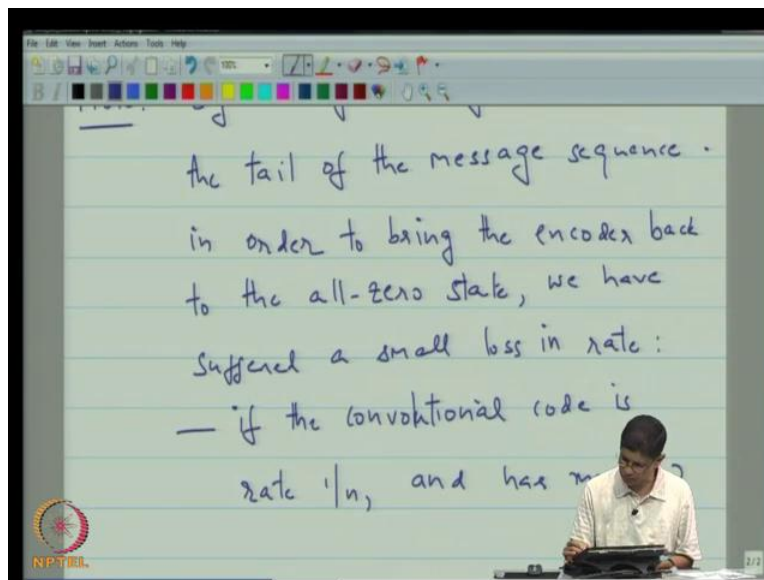 File Edit View Insert Actions Tools Help
100%
B I
the tail of the message sequence.
in order to bring the encoder back
to the all-zero state, we have
suffered a small loss in rate:
— if the convolutional code is
rate 1/n, and has
NPTEL
2/2